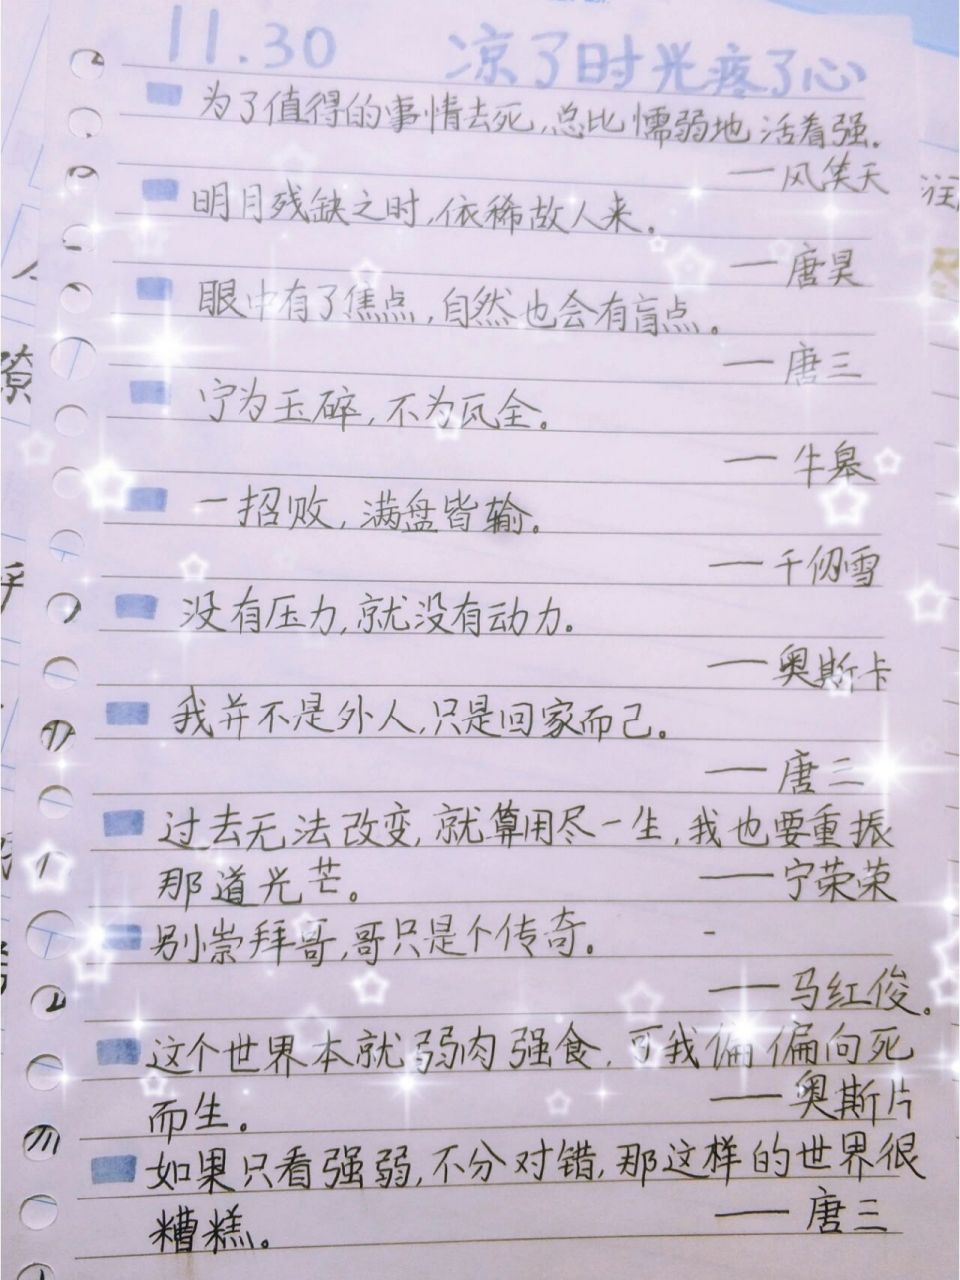 11.30 凉了时光疼了心
为了值得的事情去死,总比懦弱地活着强.
—风笑天
明月残缺之时,依稀故人来。
—唐昊
眼中有了焦点,自然也会有盲点。
—唐三
宁为玉碎,不为瓦全。
—牛皋
一招败,满盘皆输。
—千仞雪
没有压力,就没有动力。
—奥斯卡
我并不是外人,只是回家而己。
—唐三
过去无法改变,就算用尽一生,我也要重振
那道光芒。 —宁荣荣
别崇拜哥,哥只是个传奇。
—马红俊。
这个世界本就弱肉强食,可我偏偏向死
而生。 —奥斯片
如果只看强弱,不分对错,那这样的世界很
糟糕。 —唐三